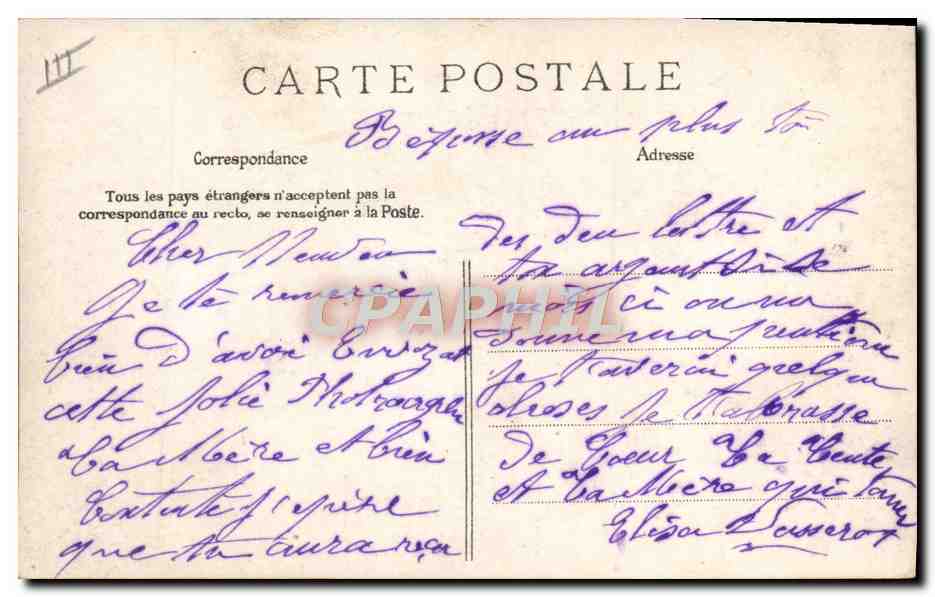 III
CARTE POSTALE
Réponse au plus tôt
Correspondance
Adresse
Tous les pays étrangers n'acceptent pas la
correspondance au recto, se renseigner à la Poste.
Cher Neuveu
Je te remercie
bien d'avoir
cette Jolie
ta Mère et bien
Contente J'espère
que tu aura reçu
des deu lettre et
ta argent
mois ci on ma
donne ma
je t'averai quelque
choses Je t'abrasse
de Coeur ta tente
et ta Mère qui t'aime
Elisa Vasserot
CPAPHIL